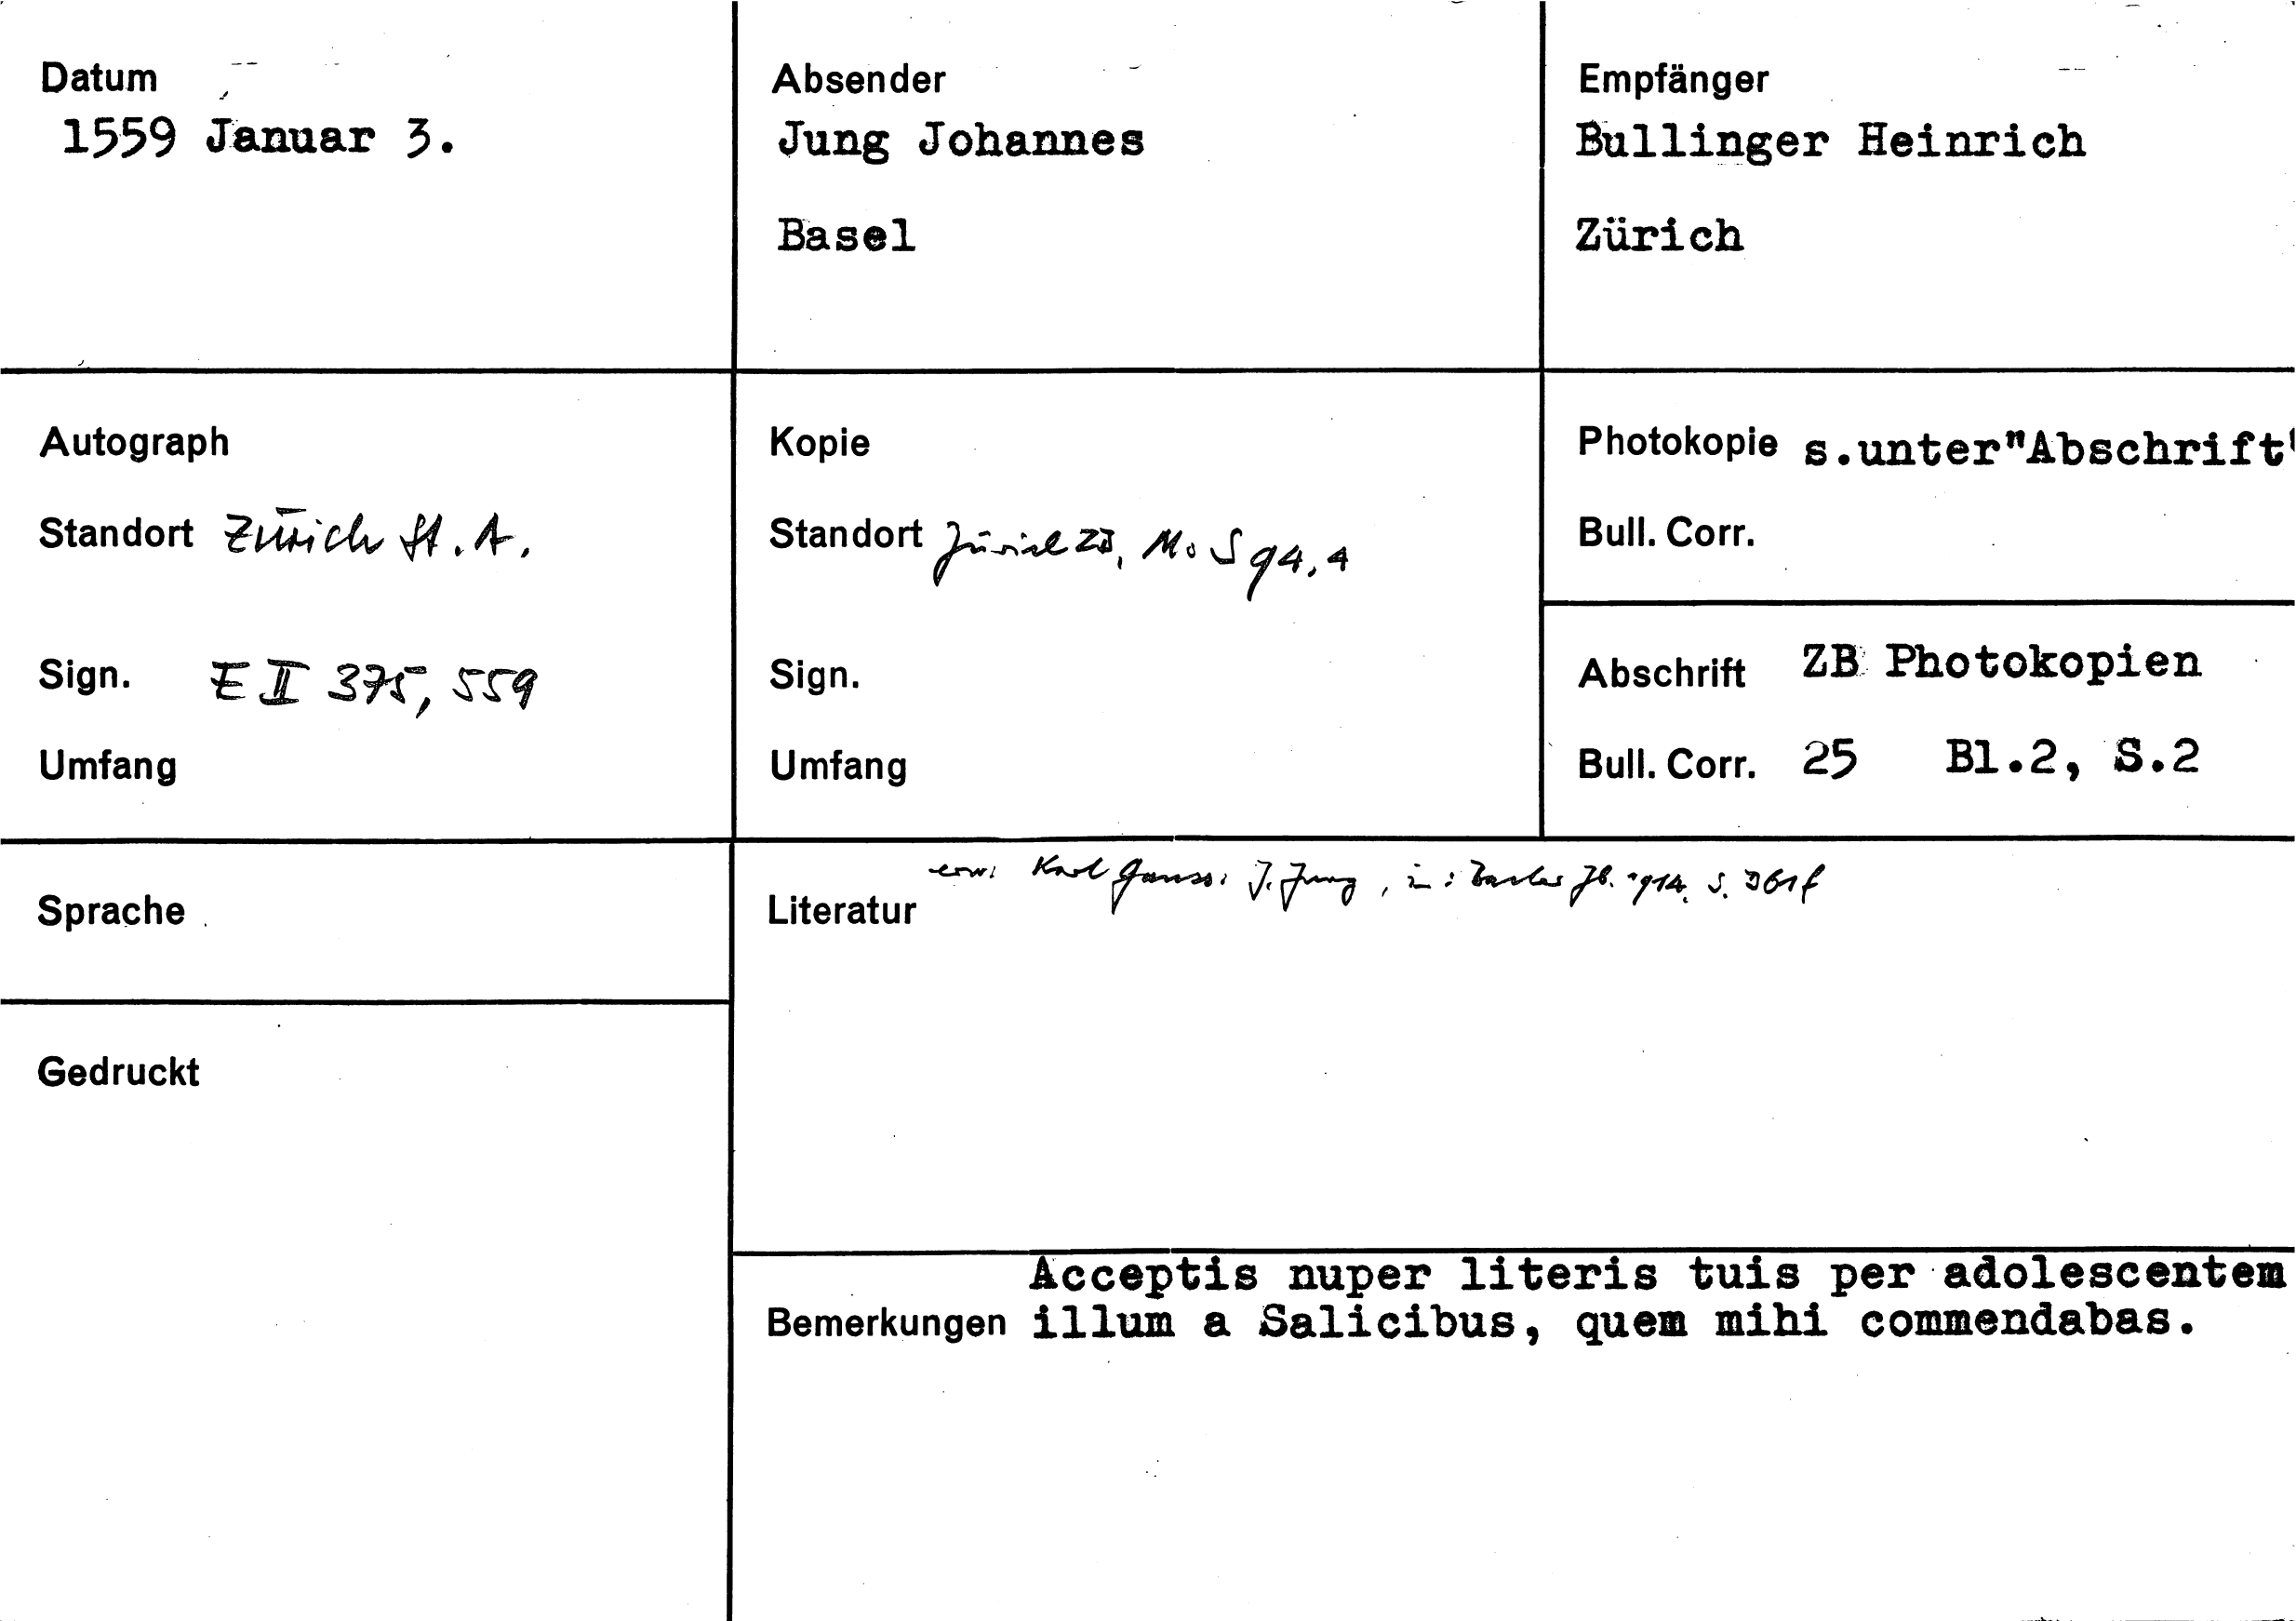 Datum
1559 Januar 3.
Absender
Jung Johannes
Basel
Empfänger
Bullinger Heinrich
Zürich
Autograph
Standort Zürich St. A.
Sign. E II 375, 559
Umfang
Kopie
Standort Zürich ZB, Ms S 94, 4
Sign.
Umfang
Photokopie s.unter"Abschrift"
Bull. Corr.
Abschrift ZB Photokopien
Bull. Corr. 25 Bl.2, S.2
Sprache
Gedruckt
Literatur erw: Karl Gauss: J. Jung, in: Basler Jb. 1914, S. 361f
Bemerkungen Acceptis nuper literis tuis per adolescentem
illum a Salicibus, quem mihi commendabas.